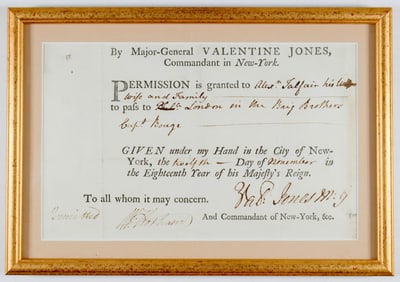 By Major-General VALENTINE JONES,
Commandant in New-York.
PERMISSION is granted to Alexr. Telfair his
wife and Family
to pass to London in the Brig Brothers
Capt.
GIVEN under my Hand in the City of New-
York, the twelfth Day of November in
the Eighteenth Year of his Majesty's Reign.
To all whom it may concern.
Val. Jones M. G
And Commandant of New-York, &c.